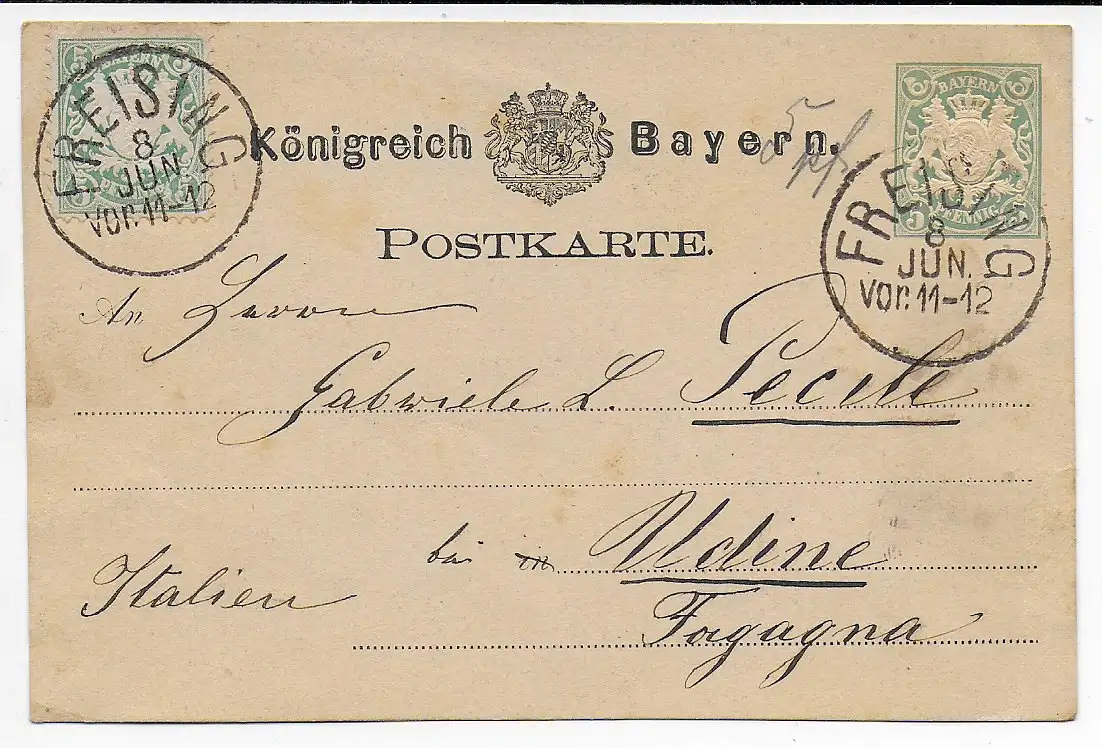 5 BAYERN 5
FREISING
8
JUN.
Vor. 11-12
Königreich Bayern.
5 pf
BAYERN
5 PFENNIG
FREISING
8
JUN.
Vor. 11-12
POSTKARTE.
An Herrn
Gabriele L. Pecile
bei in Udine
Italien
Fagagna